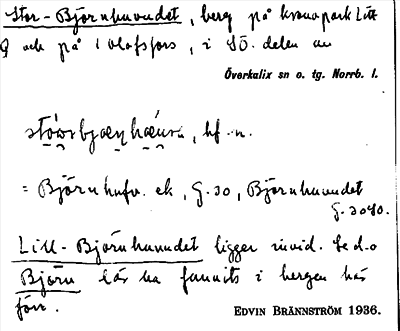 Stor-Björnhuvudet, berg på kronopark Litt
Q och på 1 Olofsfors, i SÖ. delen av
Överkalix sn o. tg. Norrb. l.
bf. n.
= Björnhufv. ek, G. 30, Björnhuvudet
G. 3040.
Lill-Björnhuvudet ligger invid. Se d.o
Björn lär ha funnits i bergen här
förr.
EDVIN BRÄNNSTRÖM 1936.